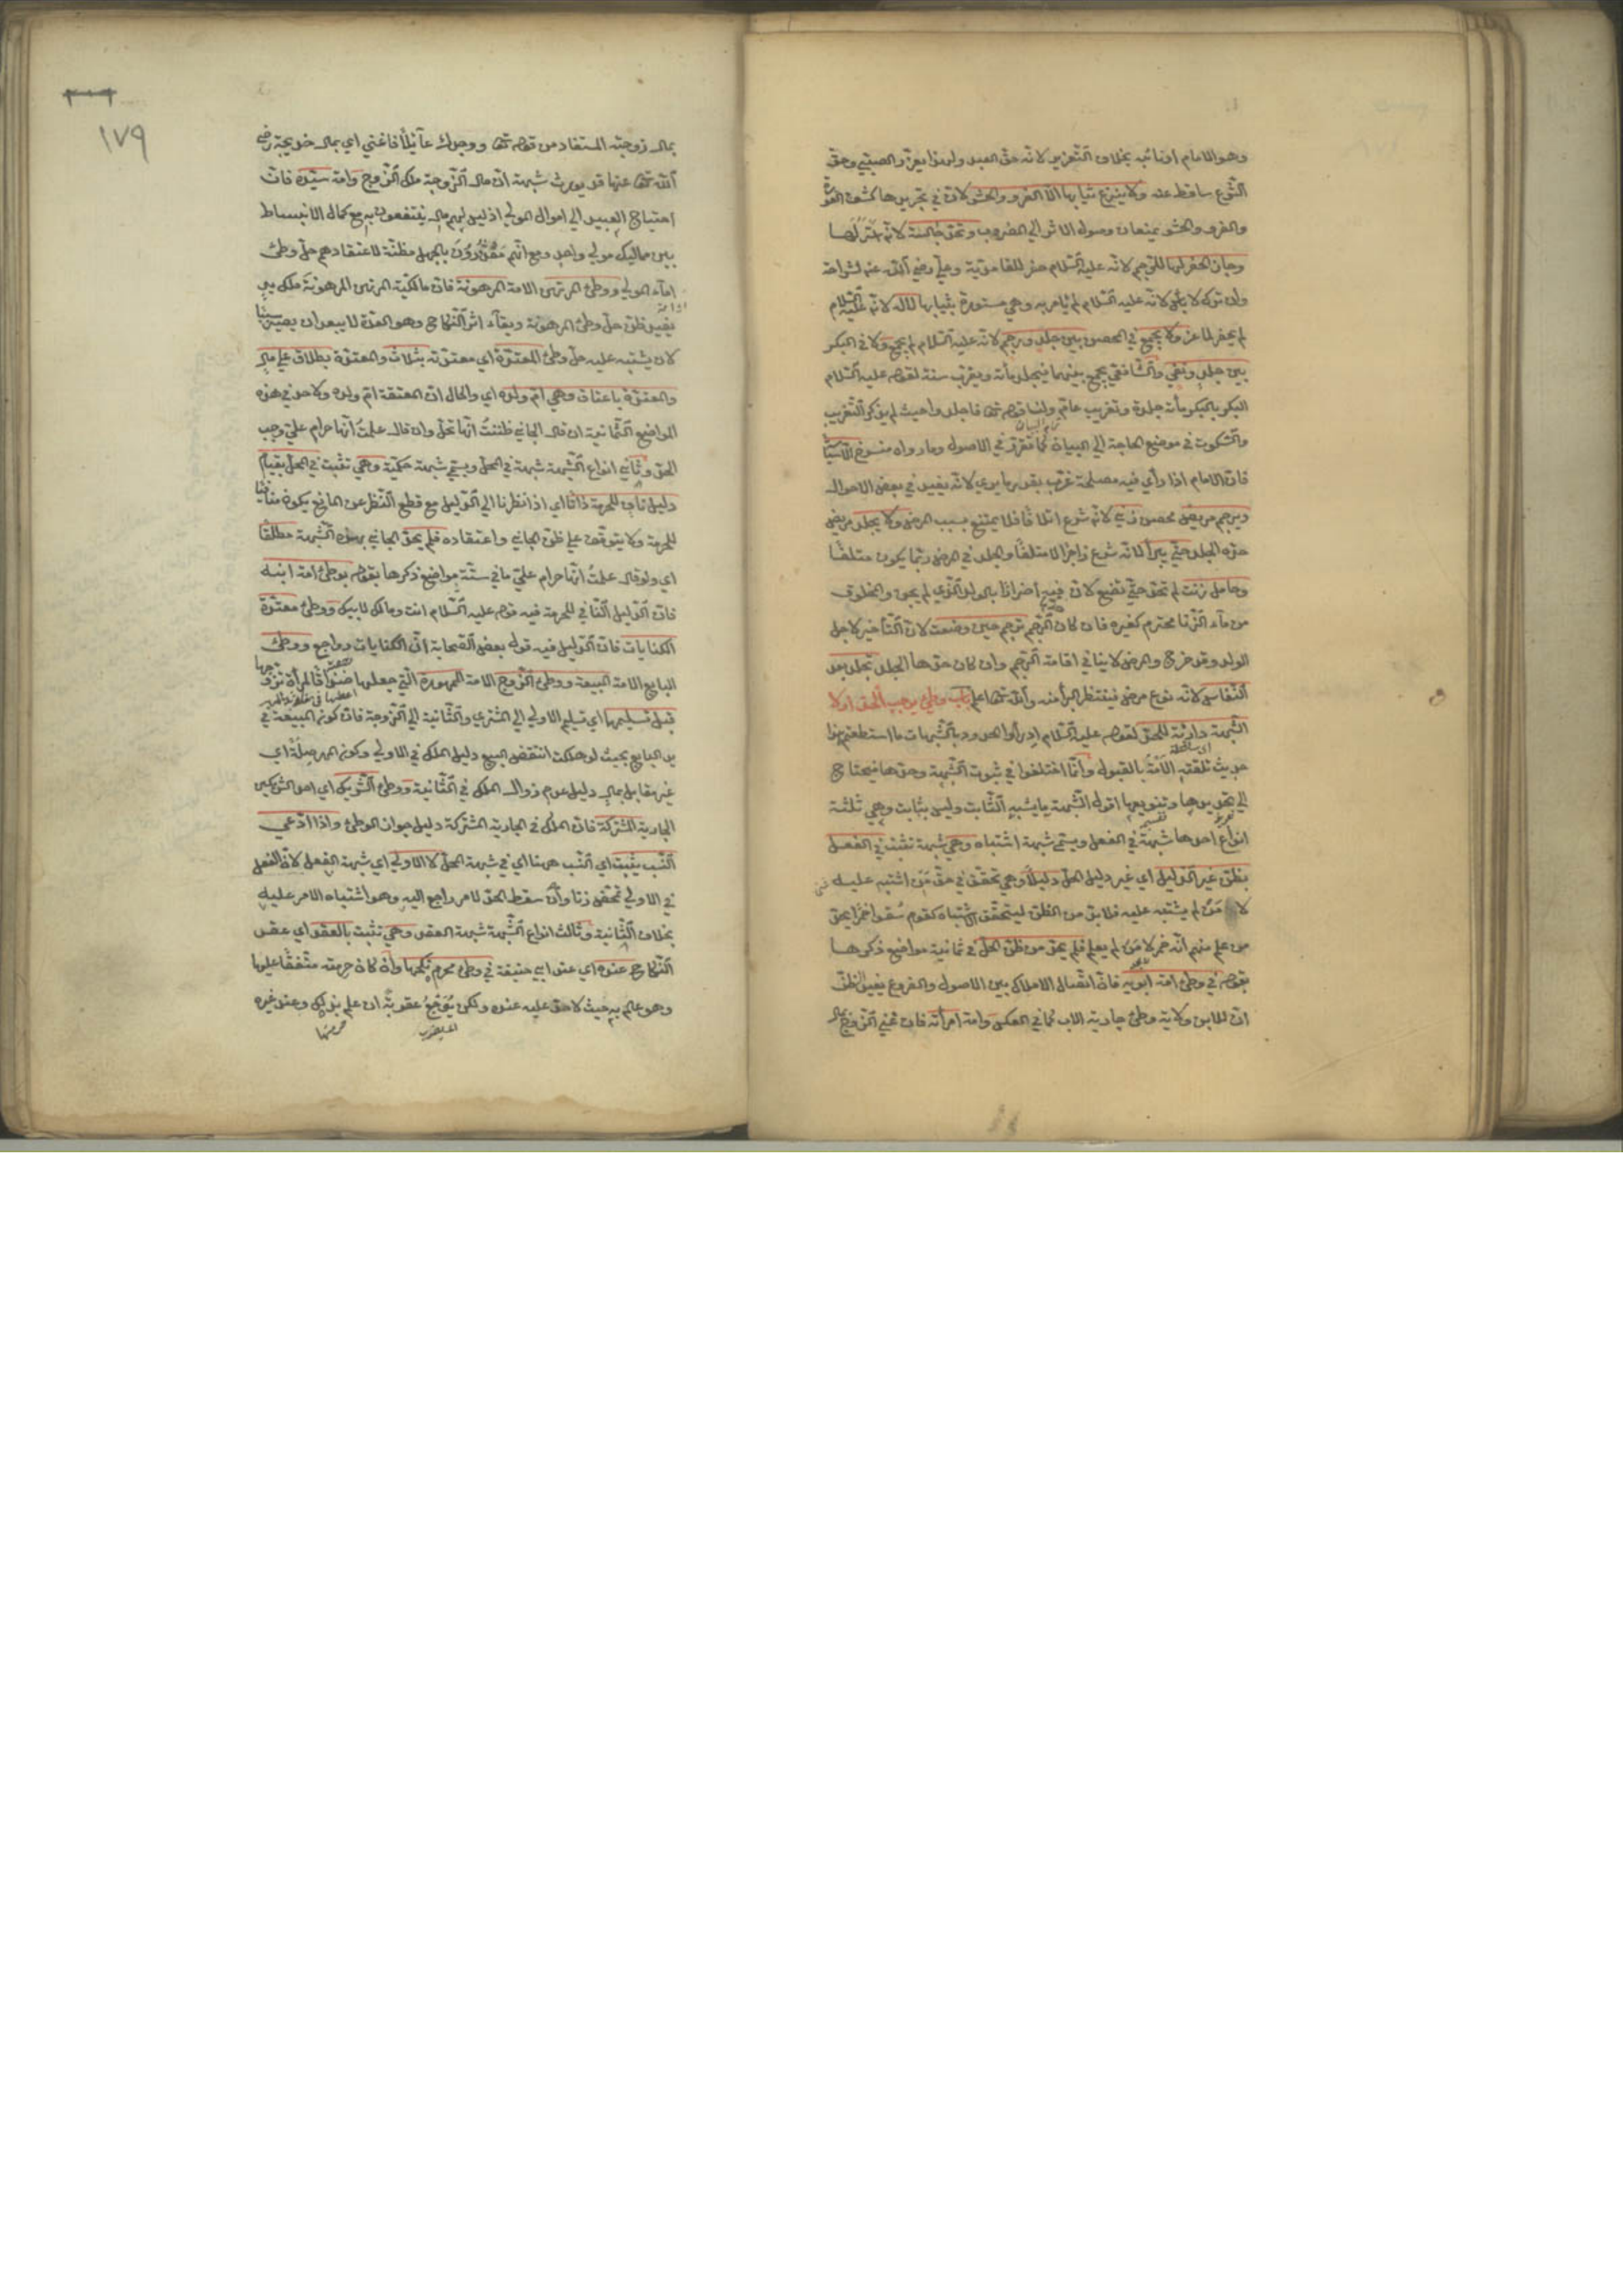 وهو الامام او نائبه بخلاف التعزير لانه حق العبد ولهذا يعزر الصبي وحق
الشرع ساقط عنه ولا ينزع ثيابها الا الفرو والحشو لان في تجريدها كشف العورة
والفرو والحشو يمنعان وصول الالم الي المضروب وتحد جالسة لانه استر لها
وجاز الحفر لها للرجم لانه عليه السلام حفر للغامدية وعلي رضي الله عنه لشراحة
وان ترك لا بأس لانه عليه السلام لم يأمر به وهي مستورة بثيابها لا له لانه عليه السلام
لم يحفر لماعز ولا يجمع في المحصن بين جلد ورجم لانه عليه السلام لم يجمع ولا في البكر
بين جلد ونفي والشافعي يجمع بينهما فيجلد مأة ويغرب سنة لقوله عليه السلام
البكر بالبكر مأة جلدة وتغريب عام ولنا قوله تعالى فاجلدوا حيث لم يذكر التغريب
والسكوت في موضع الحاجة الي البيان تمام البيان كما تقرر في الاصول وما رواه منسوخ الا سياسة
فان الامام اذا رأي فيه مصلحة غرب بقدر ما يري لانه يفيد في بعض الاحوال
ويرجم مريض محصن زني لانه شرع اتلافا فلا يمتنع بسبب المرض ولا يجلد مريض
حده الجلد حتي يبرأ لانه شرع زاجرا لا متلفا والجلد في المرض ربما يكون متلفا
وحامل زنت لم تحد حتي تضع لان فيه اضرارا بالولد الذي لم يجن والمخلوق
من ماء الزنا محترم كغيره فان كان حدها الرجم ترجم حين وضعت لان التأخير لاجل
الولد وقد خرج والمرض لا ينافي اقامة الرجم وان كان حدها الجلد تجلد بعد
النفاس لانه نوع مرض فينتظر البرأ منه والله تعالى اعلم باب وطئ يوجب الحد او لا
الشبهة دارئة للحد لقوله عليه السلام ادرأوا الحدود بالشبهات ما استطعتم هذا
اي ساقطة
حديث تلقته الامة بالقبول وانما اختلفوا في ثبوت الشبهة وحدها فيحتاج
الي تحديدها وتنويعها اقول الشبهة ما يشبه الثابت وليس بثابت وهي ثلثة
انواع احدها شبهة في الفعل ويسمي شبهة اشتباه وهي شبهة تثبت في الفعل
بظن غير الدليل اي غير دليل الحل دليلا وهي تحقق في حق من اشتبه عليه
لا من لم يشتبه عليه فلا بد من الظن ليتحقق الاشتباه كقوم سقوا خمرا يحد
من علم منهم انه خمر لا من لم يعلم فلم يحد من ظن الحل في ثمانية مواضع ذكرها
بقوله في وطئ امة ابويه فان اتصال الاملاك بين الاصول والفروع يفيد ظن
ان للابن ولاية وطئ جارية الاب كما في العكس وامة امرأته فان غني الزوج بمال
١٧٩
بمال زوجته المستفاد من قوله تعالى ووجدك عآئلا فاغني اي بمال خديجة رضي
الله تعالى عنها قد يورث شبهة ان مال الزوجة ملك الزوج وامة سيده فان
احتياج العبيد الي اموال المولي اذ ليس لهم مال ينتفعون به مع كمال الانبساط
بين مماليك مولي واحد ومع انهم معذورون بالجهل مظنة لاعتقادهم حل وطئ
امآء المولي ووطئ المرتهن الامة المرهونة فان مالكية المرتهن المرهونة ملك يد
يفيد ظن حل وطئ المرهونة وبقاء اثر النكاح وهو العدة لا يبعد ان يصير سببا
لان يشتبه عليه حل وطئ المعتدة اي معتدته بثلاث والمعتدة بطلاق علي مال
والمعتدة باعتاق وهي ام ولده اي والحال ان المعتقة ام ولده ولا حد في هذه
المواضع الثمانية ان قال الجاني ظننت انها تحل وان قال علمت انها حرام علي وجب
الحد وثاني انواع الشبهة شبهة في المحل ويسمي شبهة حكمية وهي تثبت في المحل بقيام
دليل ناف للحرمة ذاتا اي اذا نظرنا الي الدليل مع قطع النظر عن المانع يكون منافيا
للحرمة ولا يتوقف علي ظن الجاني واعتقاده فلم يحد الجاني بهذه الشبهة مطلقا
اي ولو قال علمت انها حرام علي ما في ستة مواضع ذكرها بقوله بوطئ امة ابنه
فان الدليل النافي للحرمة فيه قوله عليه السلام انت ومالك لابيك ووطئ معتدة
الكنايات فان الدليل فيه قول بعض الصحابة ان الكنايات رواجع ووطئ
البايع الامة المبيعة ووطئ الزوج الامة الممهورة التي جعلها صداقا لمرأة تزوجها
قبل تسليمها اي تسليم الاولي الي المشتري والثانية الي الزوجة فان كون المبيعة في
يد البايع بحيث لو هلكت انتقض البيع دليل الملك في الاولي وكون المهر صلة اي
غير مقابل بمال دليل عدم زوال الملك في الثانية ووطئ الشريك اي احد الشريكين
الجارية المشتركة فان الملك في الجارية المشتركة دليل جواز الوطئ واذا ادعي
النسب يثبت اي النسب ههنا اي في شبهة المحل لا الاولي اي شبهة الفعل لان الفعل
في الاولي تمحض زنا وان سقط الحد لامر راجع اليه وهو اشتباه الامر عليه
بخلاف الثانية وثالث انواع الشبهة شبهة العقد وهي تثبت بالعقد اي عقد
النكاح عنده اي عند ابي حنيفة في وطئ محرم نكحها وان كان حرمته متفقا عليها
وهو عالم به حيث لا حد عليه عنده ولكن يوجع عقوبة ان علم بذلك وعند غيره
حرمتها